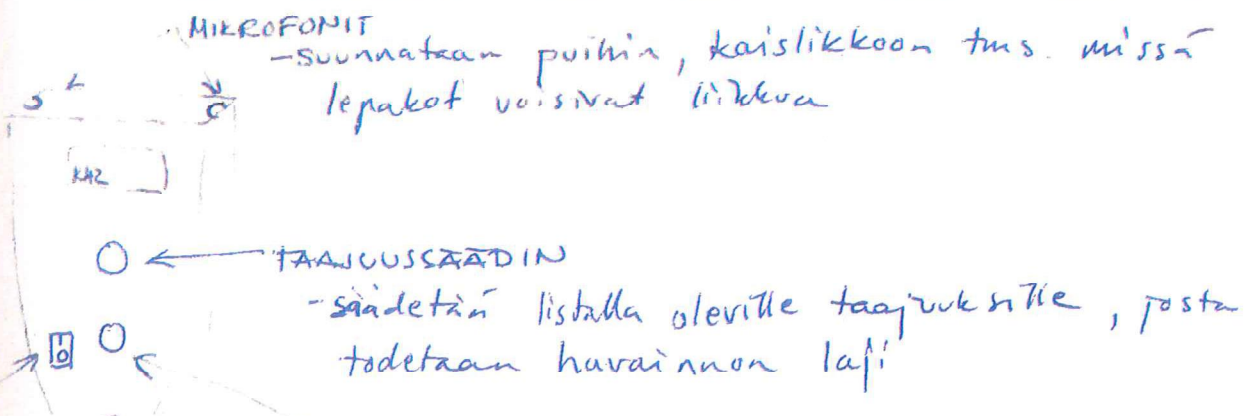 MIKROFONIT
-suunnataan puihin, kaislikkoon tms. missä
lepakot voisivat liikkua
KHZ
TAAJUUSSÄÄDIN
-säädetään listalla oleville taajuuksille, josta
todetaan havainnon laji